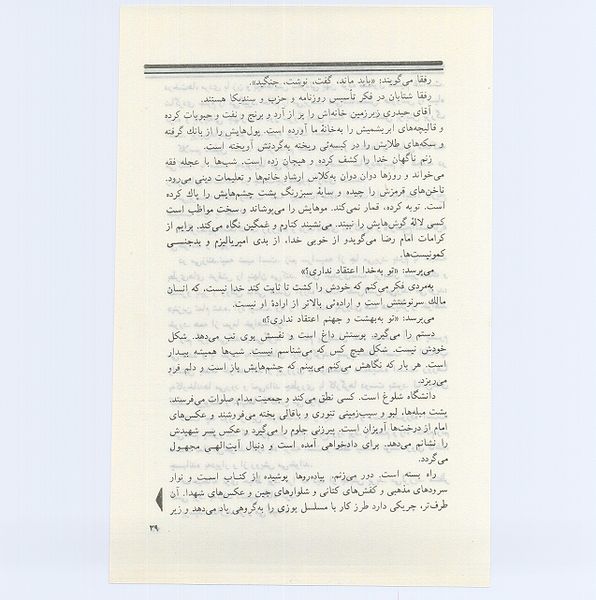 رفقا می‌گویند: «باید ماند، گفت، نوشت، جنگید».
رفقا شتابان در فکر تأسیس روزنامه و حزب و سندیکا هستند.
آقای حیدری زیرزمین خانه‌اش را پر از آرد و برنج و نفت و حبوبات کرده
و قالیچه‌های ابریشمیش را به‌خانهٔ ما آورده است. پول‌هایش را از بانك گرفته
و سکه‌های طلایش را در کیسه‌ئی ریخته به‌گردنش آویخته است.
زنم ناگهان خدا را کشف کرده و هیجان زده است. شب‌ها با عجله فقه
می‌خواند و روزها دوان دوان به‌کلاس ارشاد خانم‌ها و تعلیمات دینی می‌رود.
ناخن‌های قرمزش را چیده و سایهٔ سبزرنگ پشت چشم‌هایش را پاك کرده
است. توبه کرده، قمار نمی‌کند. موهایش را می‌پوشاند و سخت مواظب است
کسی لالهٔ گوش‌هایش را نبیند. می‌نشیند کنارم و غمگین نگاه می‌کند. برایم از
کرامات امام رضا می‌گوید‌و از خوبی خدا، از بدی امپریالیزم و بدجنسی
کمونیست‌ها.
می‌پرسد: «تو به‌خدا اعتقاد نداری؟»
به‌مردی فکر می‌کنم که خودش را کشت تا ثابت کند خدا نیست، که انسان
مالك سرنوشتش است و اراده‌ئی بالاتر از ارادهٔ او نیست.
می‌پرسد: «تو به‌بهشت و جهنم اعتقاد نداری؟»
دستم را می‌گیرد. پوستش داغ است و نفسش بوی تب می‌دهد. شکل
خودش نیست. شکل هیچ کس که می‌شناسم نیست. شب‌ها همیشه بیدار
است. هر بار که نگاهش می‌کنم می‌بینم که چشم‌هایش باز است و دلم فرو
می‌ریزد.
دانشگاه شلوغ است. کسی نطق می‌کند و جمعیت مدام صلوات می‌فرستند.
پشت میله‌ها، لبو و سیب‌زمینی تنوری و باقالی پخته می‌فروشند و عکس‌های
امام از درخت‌ها آویزان است. پیرزنی جلوم را می‌گیرد و عکس پسر شهیدش
را نشانم می‌دهد. برای دادخواهی آمده است و دنبال آیت‌الهی مجهول
می‌گردد.
راه بسته است. دور می‌زنم. پیاده‌روها پوشیده از کتاب است و نوار
سرودهای مذهبی و کفش‌های کتانی و شلوارهای جین و عکس‌های شهدا. آن
طرف‌تر، چریکی دارد طرز کار با مسلسل یوزی را به‌گروهی یاد می‌دهد و زیر
۲۹